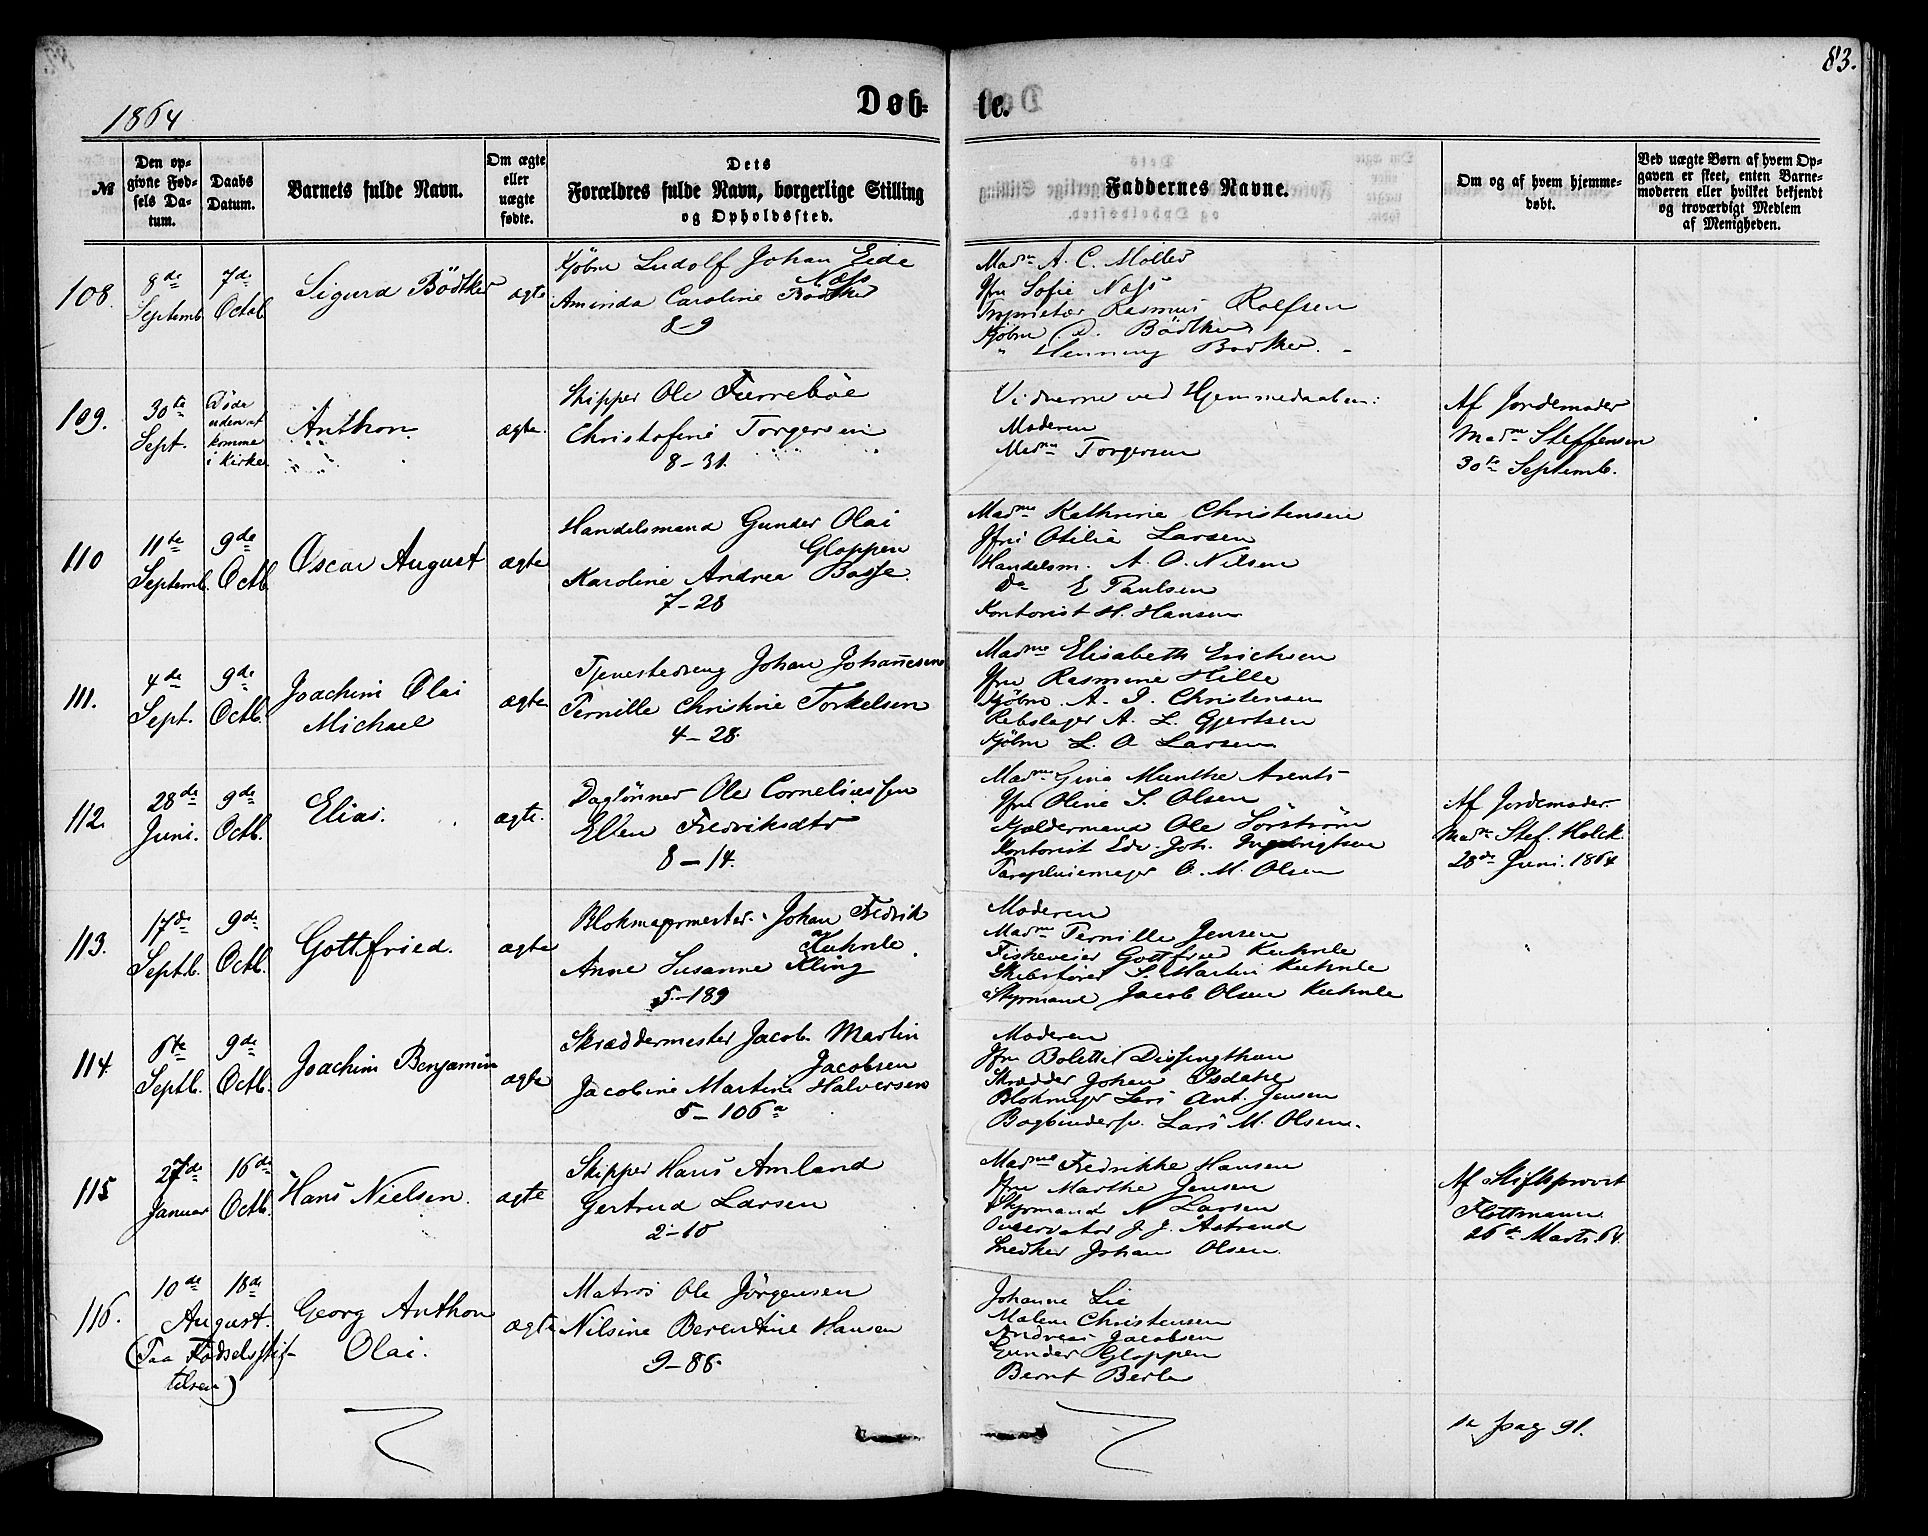 83.
1864
Døb-
te.
№
Den op-
givne Fød-
sels Da-
tum.
Daabs
Datum.
Barnets fulde Navn.
Om ægte
eller
uægte
fødte.
Dets
Forældres fulde Navn, borgerlige Stilling
og Opholdssted.
Faddernes Navne.
Om og af hvem hjemme-
døbt.
Ved uægte Børn af hvem Op-
gaven er skeet, enten Barne-
moderen eller hvilket bekjendt
og troværdigt Medlem
af Menigheden.
108.
8de
Septemb.
7de
Octob.
Sigurd Bödtker
ægte
Kjöbm Ludolf Johan Eide
Næss
Aminda Caroline Bødtker
8-9
Madm A. C. Möller
Jfru Sofie Næss
Proprietær Rasmus Rolfsen
Kjöbm D. Bödtker
" Henning Bødtker.
109.
30te
Sept.
Døde
uden at
komme
i Kirke
Anthon
ægte.
Skipper Ole Færreböe
Christofine Torgersen
8-31.
Vidnerne ved Hjemmedaaben:
Moderen
Madm Torgersen
Af Jordemoder
Madm Steffensen
30te Septemb.
110
11te
Septemb.
9de
Octb.
Oscar August
ægte
Handelsmand Gunder Olai
Gloppen
Karoline Andrea Basse.
7-28
Madme Kathrine Christensen
Jfru Otilia Larsen
Handelsm. A. O. Nilsen
Do E Paulsen
Kontorist H. Hansen
111.
4de
Sept.
9de
Octb.
Joachim Olai
Michael
ægte
Tjenestedreng Johan Johannesen
Pernille Christine Torkelsen
4-28.
Madme Elisabeth Erichsen
Jfru Rasmine Hille
Kjöbm. A. J. Christensen
Rebslager A. L. Gjertsen
Kjöbm L. O Larsen
112.
28de
Juni.
9de
Octb.
Elias.
ægte.
Daglönner Ole Corneliussen
Ellen Fredriksdtr
8-14.
Madme Gina Munthe Arents
Jfru Oline S. Olsen
Kjældermand Ole Sörström
Kontorist Edv. Joh. Ingebrigtsen
Parapluiemager O. M. Olsen
Af Jordemoder
Madm Stef. Holck.
28de Juni. 1864
113.
17de
Septb.
9de
Octb.
Gottfried.
ægte
Blokmagermester Johan Fredrik
Kuhnle
Anne Susanne Kling
5-189
Moderen
Madm Pernille Jensen
Fiskeveier Gottfried Kuhnle
Skibsförer S. Martin Kuhnle
Styrmand Jacob Olsen Kuhnle
114.
6te
Septb.
9de
Octb.
Joachim Benjamin
ægte
Skræddermester Jacob Martin
Jacobsen
Jacobine Martine Halversen
5-106a
Moderen
Jfru Bolette Dissingthun
Skrædder Johan Isdahl
Blokmager Lars Ant. Jensen
Bogbindersv. Lars M. Olsen.
115
27de
Januar
16de
Octb.
Hans Nielsen.
ægte
Skipper Hans Amland
Gertrud Larsen
2-10
Madme Fredrikke Hansen
Jfru Marthe Jensen
Styrmand N Larsen
Observator J. J. Åstrand
Snedker Johan Olsen.
Af Stiftsprovst
Flottmann
26te Marts 64.
116.
10de
18de
August.
(Paa Fødselsstif-
telsen)
Georg Anthon
Olai.
ægte
Matros Ole Jörgensen
Nilsine Berentine Hansen
9-86.
Johanne Lie
Malene Christensen
Andreas Jacobsen
Gunder Gloppen
Bernt Berle
pag 91.